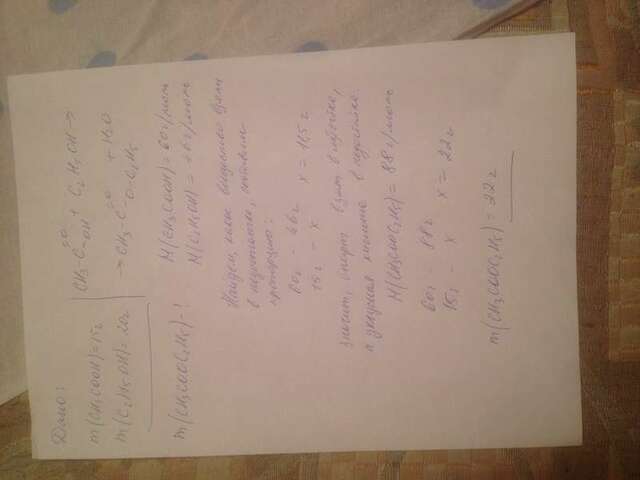 Дано:
m(CH3COOH)=15г
m(C2H5OH)=20г
m(CH3COOC2H5)-?
CH3-C=O-OH + C2H5OH →
→ CH3-C=O-O-C2H5 + H2O
M(CH3COOH)=60г/моль
M(C2H5OH)=46г/моль
Найдем, какое вещество взяли
в недостатке, составим
пропорцию:
60г - 46г
15г - x x = 11,5 г
значит, спирт взят в избытке,
а уксусная кислота в недостатке.
M(CH3COOC2H5)=88г/моль
60г - 88г
15г - x x = 22г
m(CH3COOC2H5)=22г